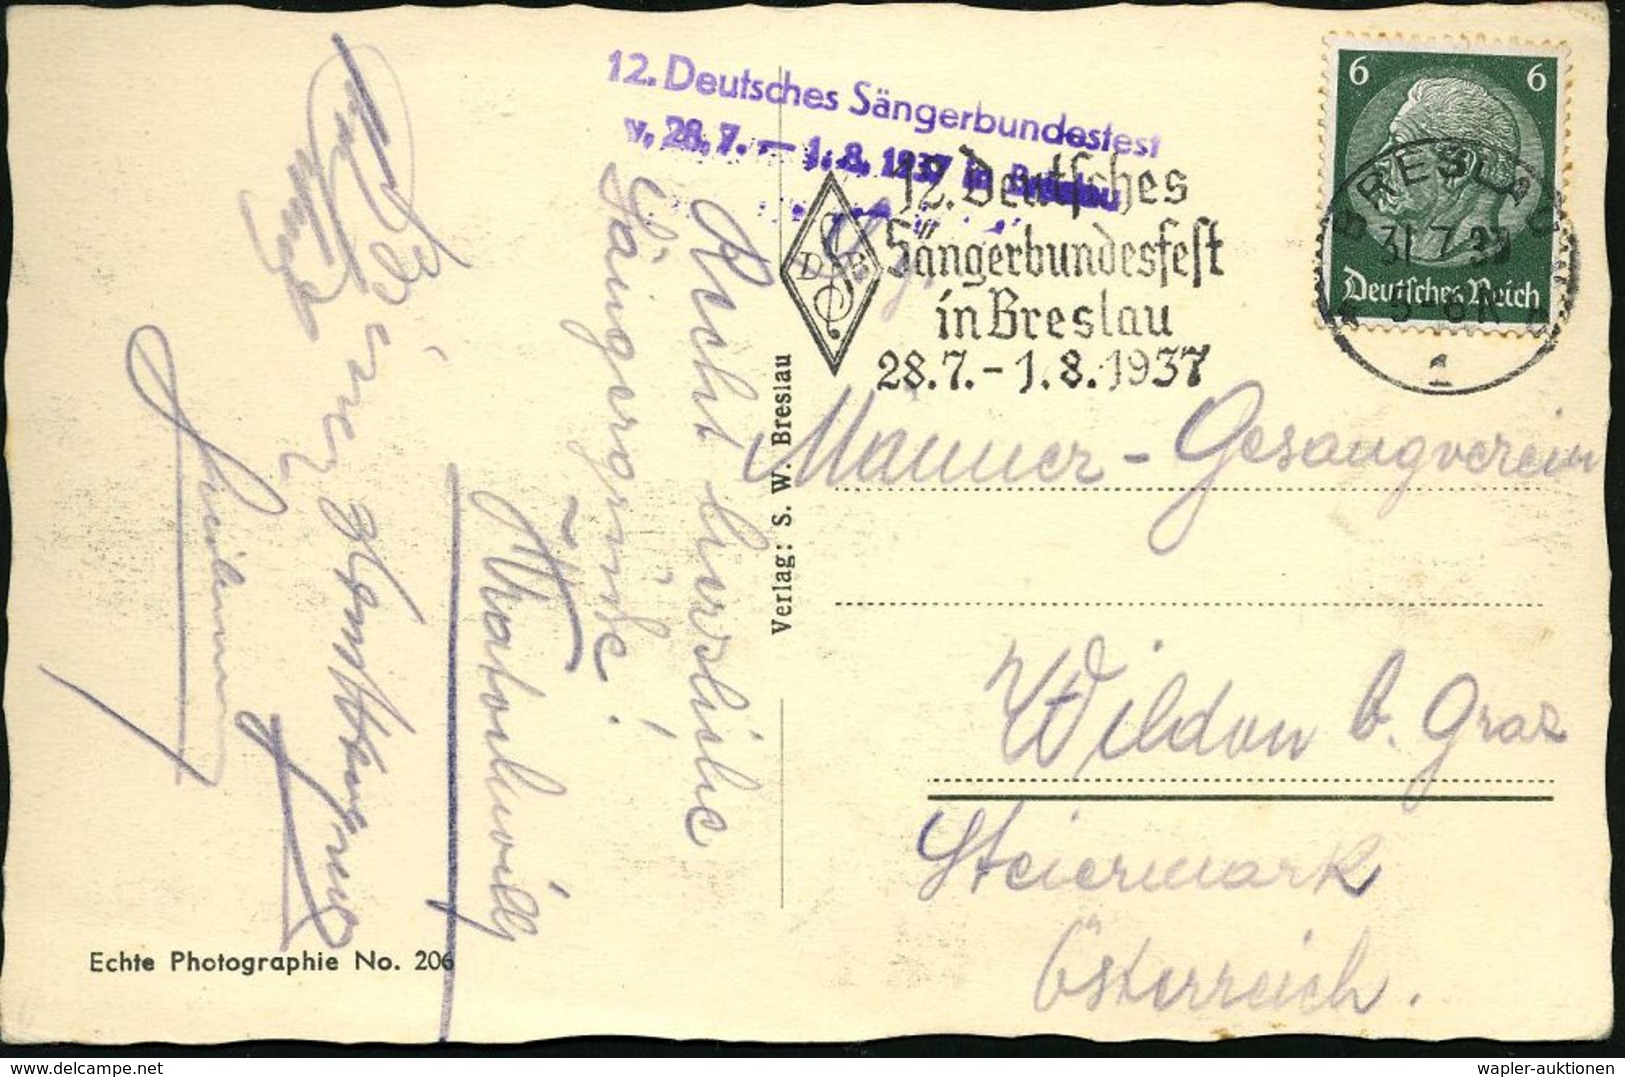 12. Deutsches Sängerbundesfest
v. 28. 7. – 1. 8. 1937 in Breslau
12. Deutsches
Sängerbundesfest
in Breslau
28.7. - 1.8.1937
D S B
6 6
Deutsches Reich
BRESLAU
31.7.37
1
Männer-Gesangverein
Wildon b. Graz
Steiermark
Österreich.
Recht herzliche
Sängergrüße!
Verlag: S. W. Breslau
Echte Photographie No. 206
wapler-auktionen.com
wapler-auktionen